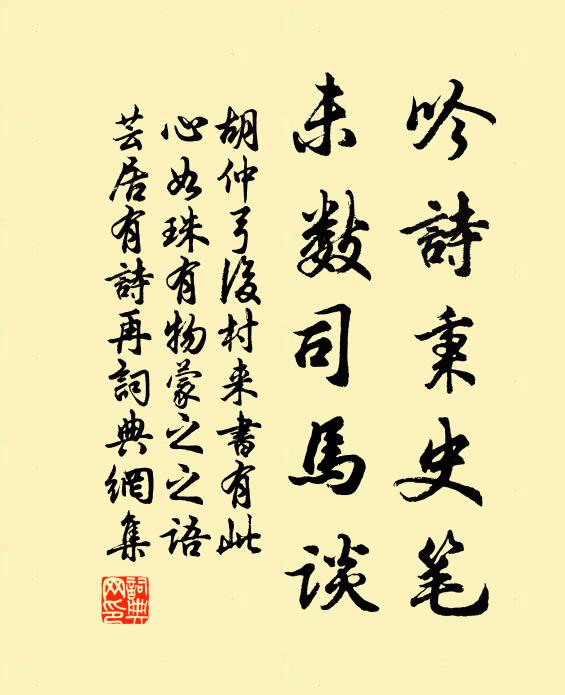 吟詩秉史笔
未数司馬談
胡仲弓後村来書有此
心如珠有物蒙之之語
芸居有詩再詞典網集
詞典网印